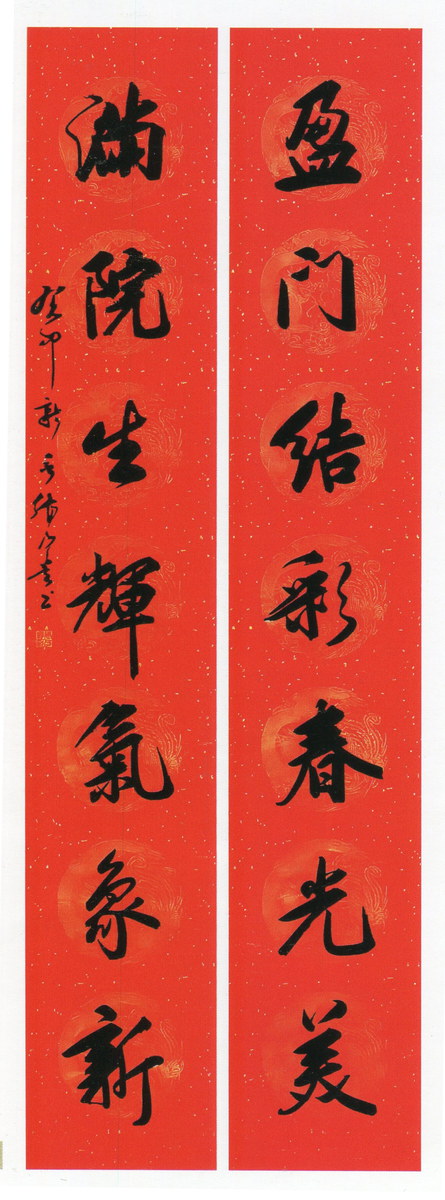 盈门结彩春光美
满院生輝氣象新
癸卯新